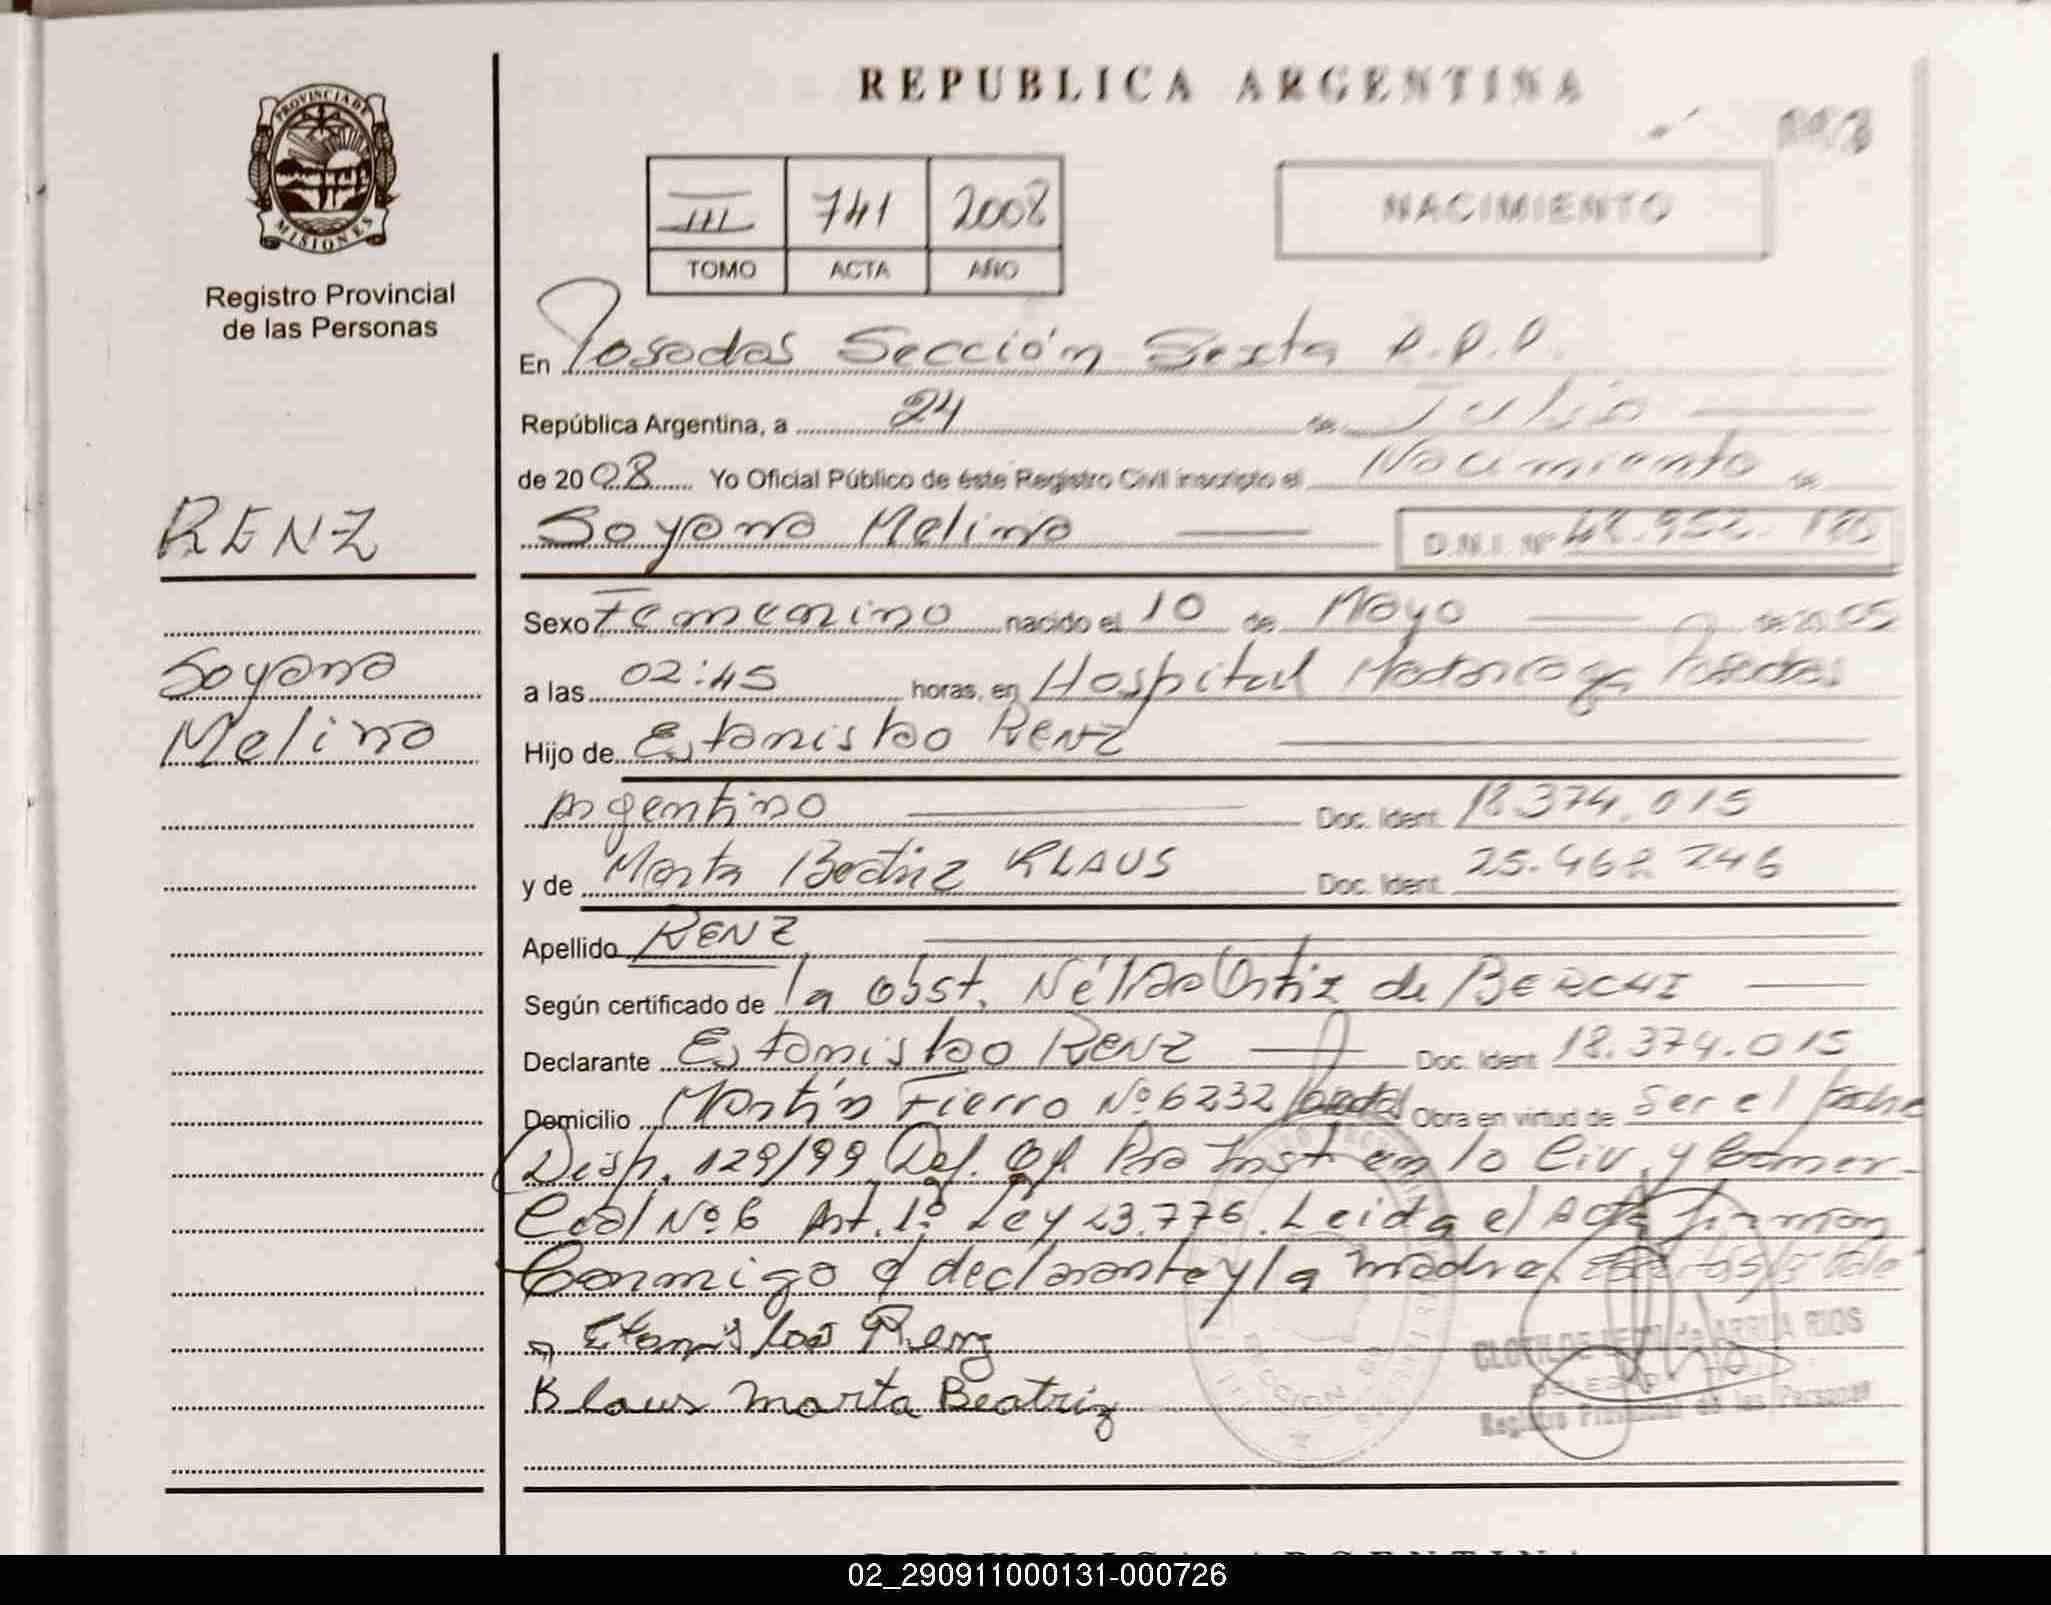 REPUBLICA ARGENTINA
PROVINCIA DE
MISIONES
Registro Provincial
de las Personas
III 741 2008
TOMO ACTA AÑO
NACIMIENTO
En Posadas Sección Sexta R.P.P.
República Argentina, a 24 de Julio
de 2008 Yo Oficial Público de éste Registro Civil inscripto el Nacimiento de
RENZ
Soyana Melina D.N.I. Nº 48.952.180
Sexo Femenino nacido el 10 de Mayo de 2005
Soyana
a las 02:45 horas, en Hospital Madariaga Posadas
Melina
Hijo de Estanislao RENZ
Argentino Doc. Ident. 18.374.015
y de Marta Beatriz KLAUS Doc. Ident. 25.462.746
Apellido RENZ
Según certificado de la Obst. Nélida Ortiz de BERCHI
Declarante Estanislao RENZ Doc. Ident. 18.374.015
Domicilio Martín Fierro Nº 6232 Posadas Obra en virtud de Ser el Padre
Disp. 129/99 Def. Of. Pra Inst en lo Civ. y Comer-
cial Nº 6 Art. 1º Ley 23.776. Leida el Acta firman
Conmigo el declarante y la madre
Etanislao Renz
Klaus Marta Beatriz
CLOTILDE de ARRUA RIOS
Registro Provincial de las Personas
02_290911000131-000726